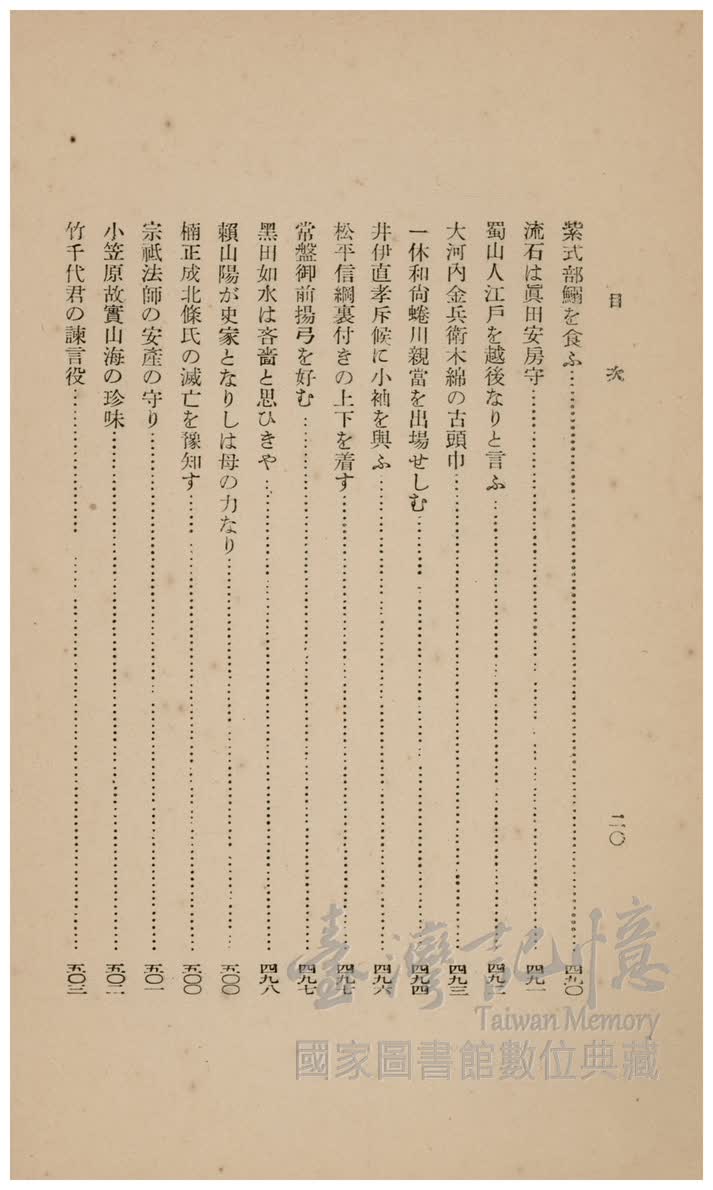 目次 二〇
紫式部鰯を食ふ……四九〇
流石は眞田安房守……四九一
蜀山人江戶を越後なりと言ふ……四九二
大河內金兵衛木綿の古頭巾……四九三
一休和尙蜷川親當を出場せしむ……四九四
井伊直孝斥候に小袖を與ふ……四九六
松平信綱裏付きの上下を着す……四九七
常盤御前揚弓を好む……四九七
黑田如水は吝嗇と思ひきや……四九八
賴山陽が史家となりしは母の力なり……五〇〇
楠正成北條氏の滅亡を豫知す……五〇〇
宗祗法師の安產の守り……五〇一
小笠原故實山海の珍味……五〇二
竹千代君の諫言役……五〇三
臺灣記憶
Taiwan Memory
國家圖書館數位典藏